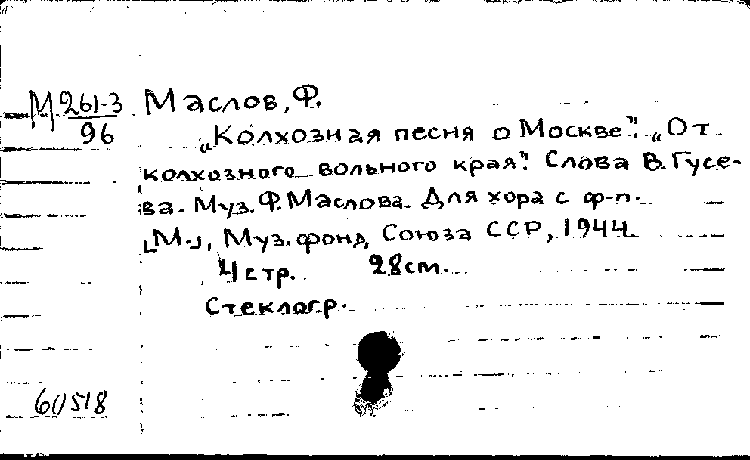 М 261-3
96
Маслов, Ф.
„Колхозная песня о Москве“. „От
колхозного вольного края“. Слова В. Гусе-
ва. Муз. Ф. Маслова. Для хора с ф-п.
[М.], Муз. фонд Союза ССР, 1944.
4 стр. 28 см.
Стеклогр.
60518